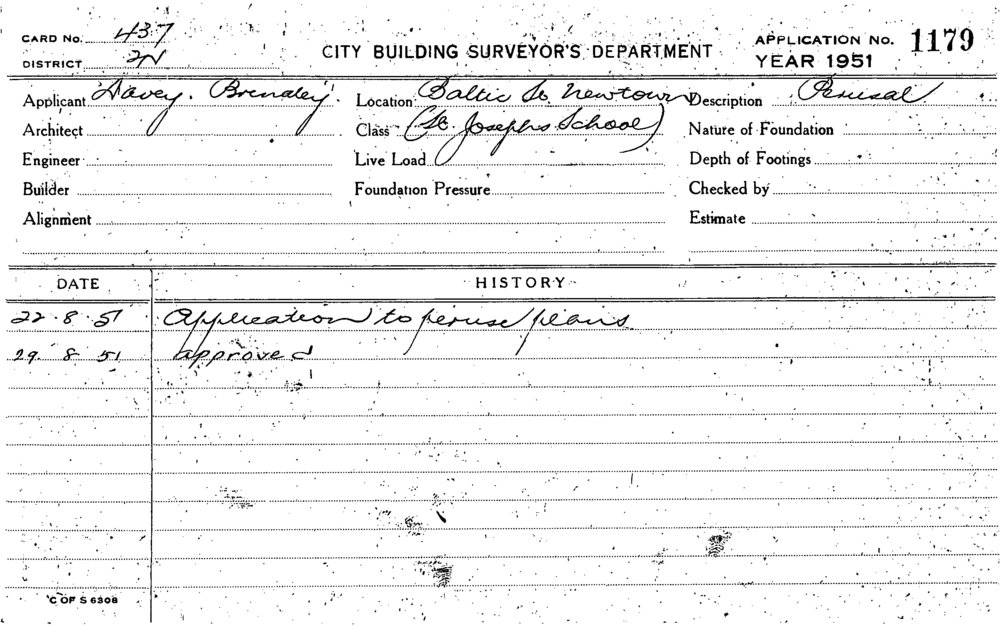 CARD No. 437
DISTRICT 2N
CITY BUILDING SURVEYOR'S DEPARTMENT
APPLICATION No. 1179
YEAR 1951
Applicant Davey. Brindley. Location Baltic St. Newtown Description Perusal
Architect Class (St. Josephs School) Nature of Foundation
Engineer Live Load Depth of Footings
Builder Foundation Pressure Checked by
Alignment Estimate
DATE HISTORY
22.8.51 Application to peruse plans
29. 8 51 approved
C OF S 6308